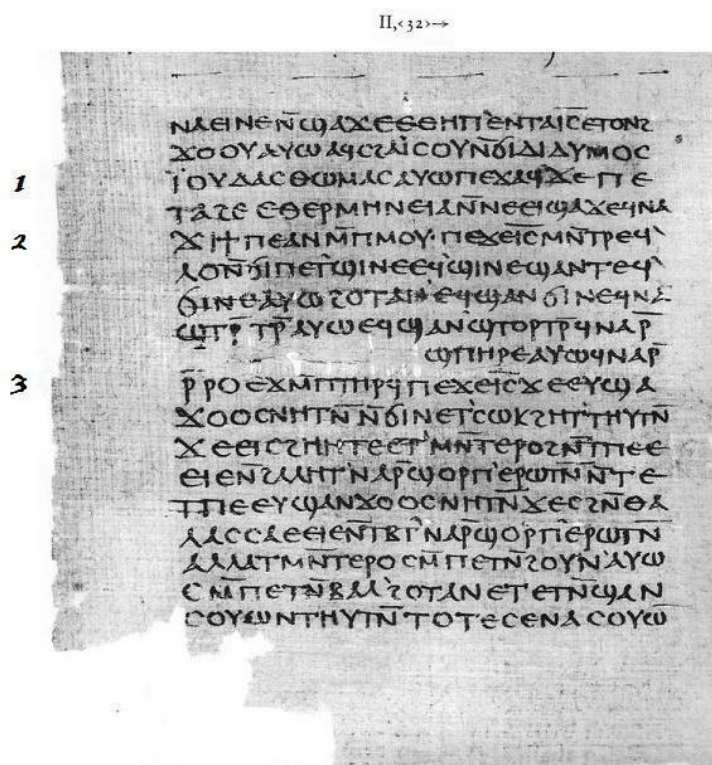 II,‹32›→
ⲛⲁⲉⲓⲛⲉⲛ̄ϣⲁϫⲉⲉⲑⲏⲡ'ⲉⲛⲧⲁⲓ̅ⲥ̅ⲉⲧⲟⲛϩ
ϫⲟⲟⲩⲁⲩⲱⲁϥⲥϩⲁⲓⲥⲟⲩⲛ̄ϭⲓⲇⲓⲇⲩⲙⲟⲥ
1 ⲓ̈ⲟⲩⲇⲁⲥⲑⲱⲙⲁⲥⲁⲩⲱⲡⲉϫⲁϥϫⲉⲡⲉ
ⲧⲁϩⲉⲉⲑⲉⲣⲙⲏⲛⲉⲓⲁⲛ̄ⲛⲉⲉⲓϣⲁϫⲉϥⲛⲁ
2 ϫⲓϯⲡⲉⲁⲛⲙ̄ⲡⲙⲟⲩ·ⲡⲉϫⲉⲓ̅ⲥ̅ⲙⲛ̄ⲧⲣⲉϥ'
ⲗⲟⲛ̄ϭⲓⲡⲉⲧ'ϣⲓⲛⲉⲉϥ'ϣⲓⲛⲉϣⲁⲛⲧⲉϥ'
ϭⲓⲛⲉⲁⲩⲱϩⲟⲧⲁⲛⲉϥϣⲁⲛϭⲓⲛⲉϥⲛⲁ
ϣⲧⲣ̄ⲧⲣ̄ⲁⲩⲱⲉϥϣⲁⲛϣⲧⲟⲣⲧⲣ̄ϥⲛⲁⲣ̄
ϣⲡⲏⲣⲉⲁⲩⲱϥⲛⲁⲣ̄
3 ⲣ̄ⲣⲟⲉϫⲙ̄ⲡⲧⲏⲣϥⲡⲉϫⲉⲓ̅ⲥ̅ϫⲉⲉⲩϣⲁ
ϫⲟⲟⲥⲛⲏⲧⲛ̄ⲛ̄ϭⲓⲛⲉⲧ'ⲥⲱⲕϩⲏⲧ'ⲧⲏⲩⲧⲛ̄
ϫⲉⲉⲓⲥϩⲏⲏⲧⲉⲉⲧ'ⲙⲛ̄ⲧⲉⲣⲟϩⲛ̄ⲧⲡⲉⲉ
ⲉⲓⲉⲛ̄ϩⲁⲗⲏⲧ'ⲛⲁⲣ̄ϣⲟⲣⲡ'ⲉⲣⲱⲧⲛ̄ⲛ̄ⲧⲉ
ⲧⲡⲉⲉⲩϣⲁⲛϫⲟⲟⲥⲛⲏⲧⲛ̄ϫⲉⲥϩⲛ̄ⲑⲁ
ⲗⲁⲥⲥⲁⲉⲉⲓⲉⲛ̄ⲧⲃⲧ'ⲛⲁⲣ̄ϣⲟⲣⲡ'ⲉⲣⲱⲧⲛ̄
ⲁⲗⲗⲁⲧⲙⲛ̄ⲧⲉⲣⲟⲥⲙ̄ⲡⲉⲧⲛ̄ϩⲟⲩⲛ'ⲁⲩⲱ
ⲥⲙ̄ⲡⲉⲧⲛ̄ⲃⲁⲗ'ϩⲟⲧⲁⲛⲉⲧⲉⲧⲛ̄ϣⲁⲛ
ⲥⲟⲩⲱⲛⲧⲏⲩⲧⲛ̄ⲧⲟⲧⲉⲥⲉⲛⲁⲥⲟⲩⲱ